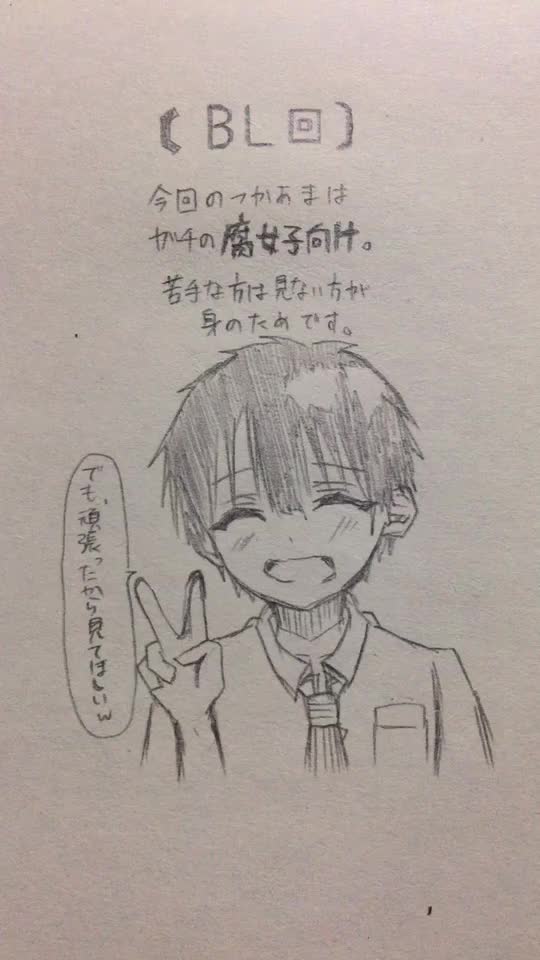 【BL回】
今回のつかあまは
ガチの腐女子向け。
苦手な方は見ない方が
身のためです。
でも、頑張ったから見てほしいw